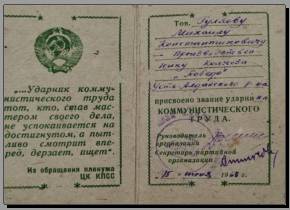 „...Ударник комму-
нистического труда
тот, кто, став мас-
тером своего дела,
не успокаивается на
достигнутом, а пыт-
ливо смотрит впе-
ред, дерзает, ищет".
Из обращения пленума
ЦК КПСС
Тов.
Михаилу
Константиновичу
колхоза
„Победа"
присвоено звание ударника
КОММУНИСТИЧЕСКОГО
ТРУДА.
Руководитель
организации
Секретарь партийной
организации
15